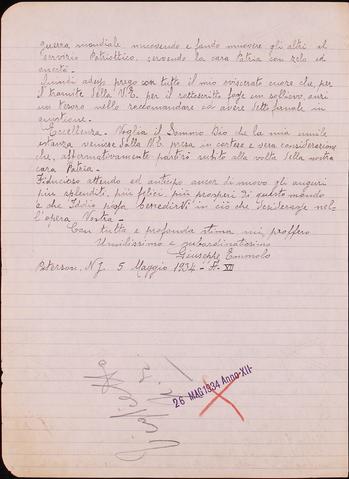 guerra mondiale muovendo e fando muovere gli altri al
servizio Patriottico, servendo la cara Patria con zelo ed
onestà.
Quindi adesso prego con tutto il mio sviscerato cuore che, per
il tramite della V.E. per il sottoscritto foglio un sollievo, anzi
un tesoro nello raccomandare ed avere detto formale in
questione.
Eccellenza. Voglia il Sommo Dio che la mia umile
istanza venisse dalla V.E. presa in cortese e vera considerazione
che, affermativamente partirò subito alla volta della nostra
cara Patria.
Fiducioso attendo ed anticipo ancor di nuovo gli auguri
più splendidi, più felici, più prosperi di questo mondo
e che Iddio possa benedirVi in ciò che desiderate nel-
l'opera Vostra.
Con tutta e profonda stima mi, proffero
Umilissimo e subordinatissimo
Giuseppe Emmolo
Paterson. N.J. 5 Maggio 1934 - F. XII
26 MAG 1934 Anno XII